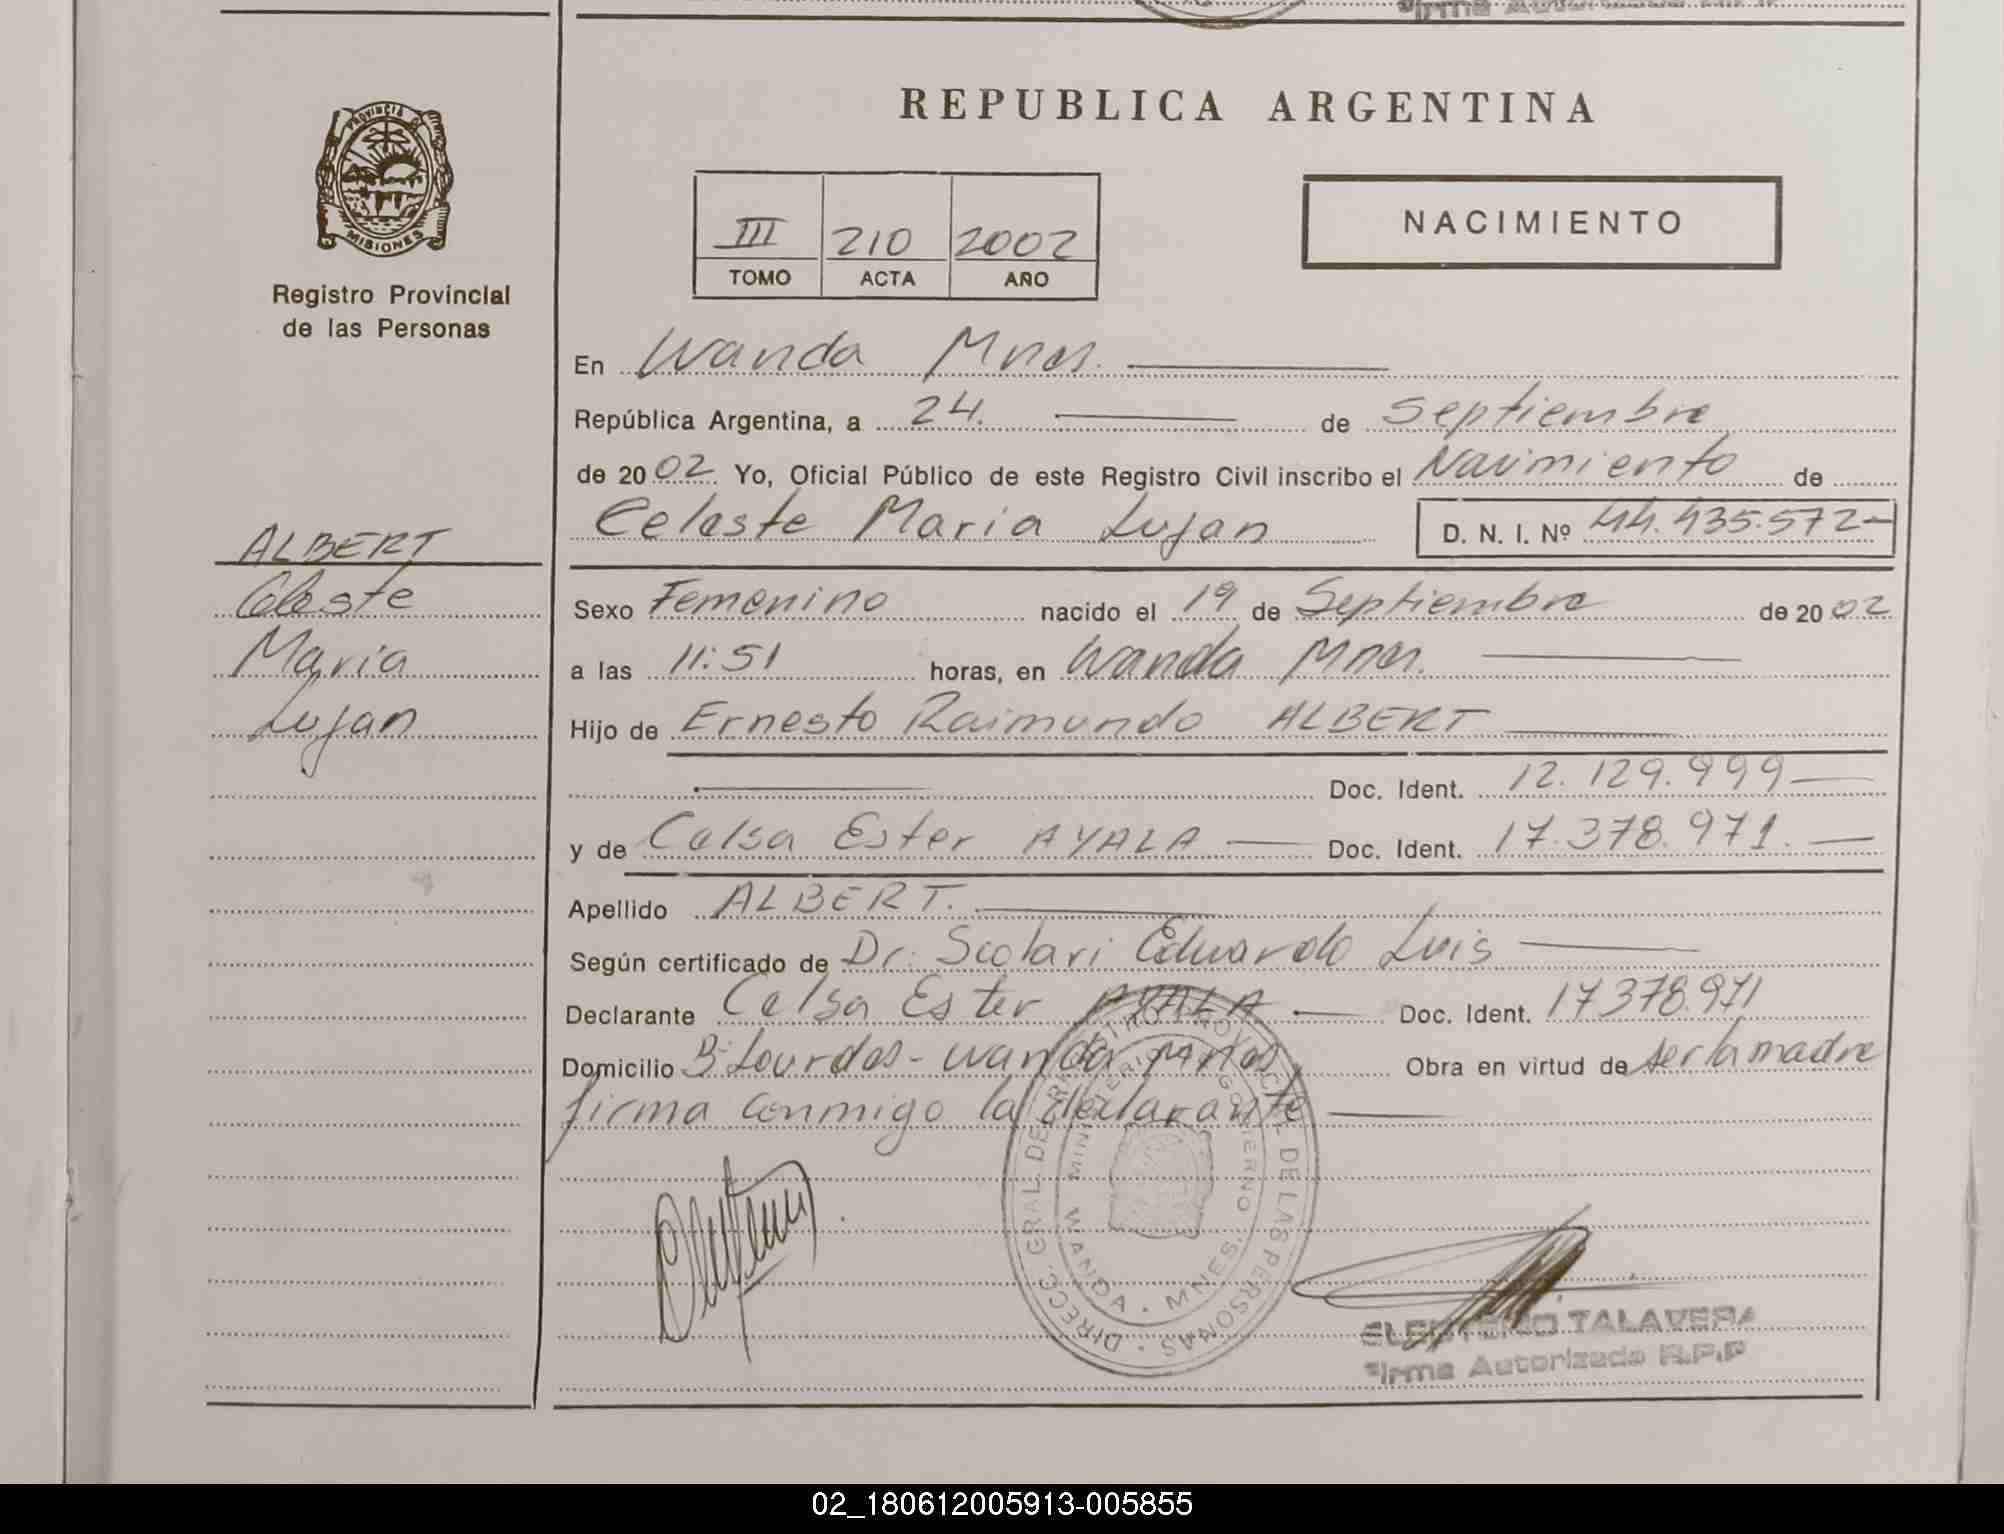 Firma Autorizada R.P.P
REPUBLICA ARGENTINA
PROVINCIA DE
MISIONES
Registro Provincial
de las Personas
III 210 2002
TOMO ACTA AÑO
NACIMIENTO
En Wanda Mnes.
República Argentina, a 24. de Septiembre
de 2002 Yo, Oficial Público de este Registro Civil inscribo el Nacimiento de
Celeste Maria Lujan D. N. I. Nº 44.435.572-
ALBERT
Celeste
Maria
Lujan
Sexo Femenino nacido el 19 de Septiembre de 2002
a las 11:51 horas, en Wanda Mnes.
Hijo de Ernesto Raimundo ALBERT
Doc. Ident. 12.129.999
y de Celsa Ester AYALA Doc. Ident. 17.378.971.
Apellido ALBERT.
Según certificado de Dr. Scolari Eduardo Luis
Declarante Celsa Ester AYALA Doc. Ident. 17378.971
Domicilio Bº Lourdes - Wanda Mnes Obra en virtud de ser la madre
firma conmigo la declarante
DIRECC. GRAL. DE REGISTRO PROVINCIAL DE LAS PERSONAS
MINISTERIO GOBIERNO
WANDA - MNES.
ELEUTERIO TALAVERA
Firma Autorizada R.P.P
02_180612005913-005855